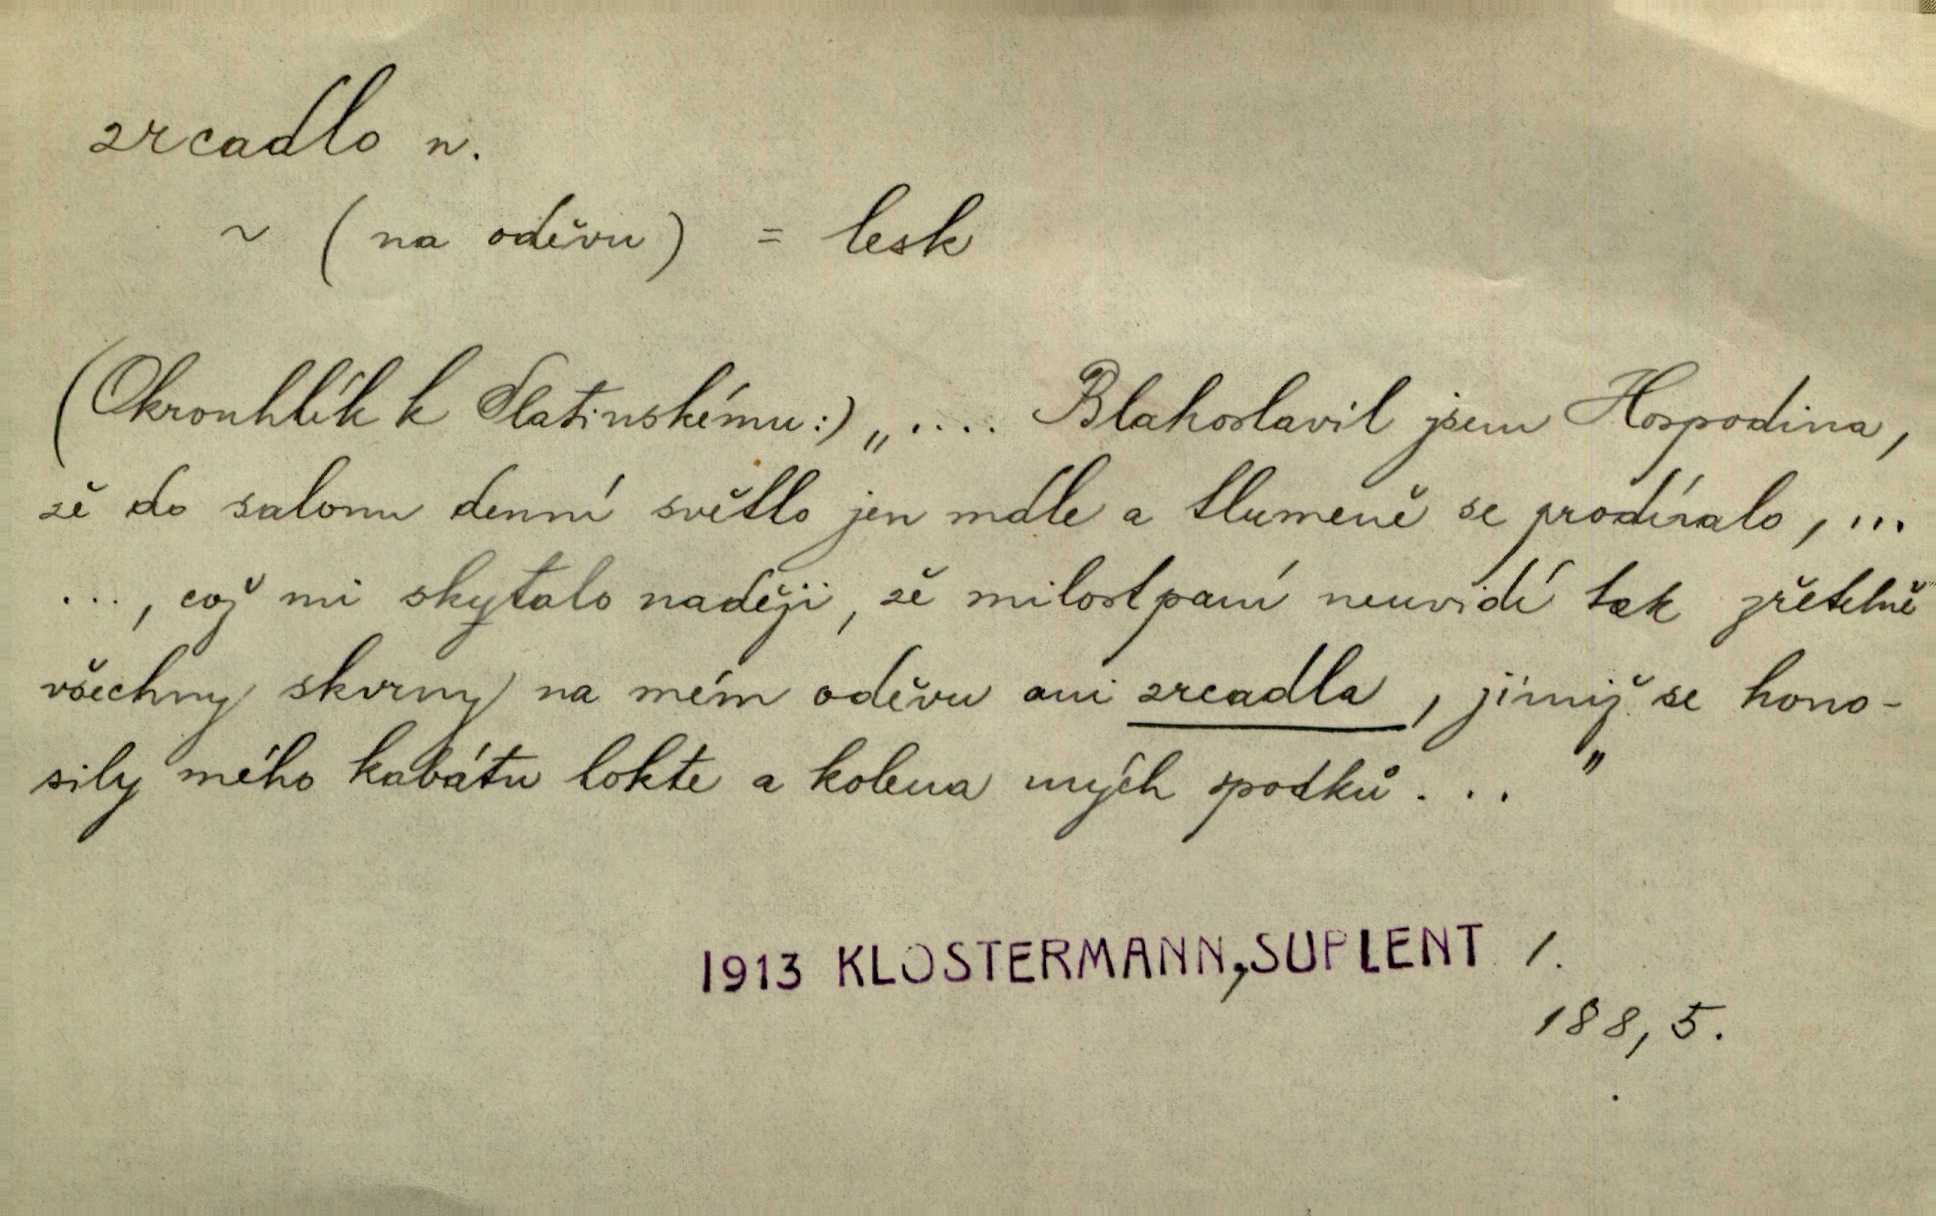 zrcadlo n.
~ (na oděvu) = lesk
(Okrouhlík k Slatinskému:) „.... Blahoslavil jsem Hospodina,
že do salonu denní světlo jen mdle a tlumeně se prodíralo, ...
..., což mi skytalo naději, že milostpaní neuvidí tak zřetelně
všechny skvrny na mém oděvu ani zrcadla, jimiž se hono-
sily mého kabátu lokte a kolena mých spodků..."
1913 KLOSTERMANN, SUPLENT 1.
188, 5.